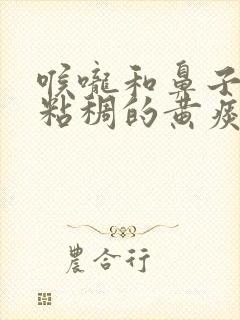 喉嚨和鼻子
粘稠的黃痰
農合行